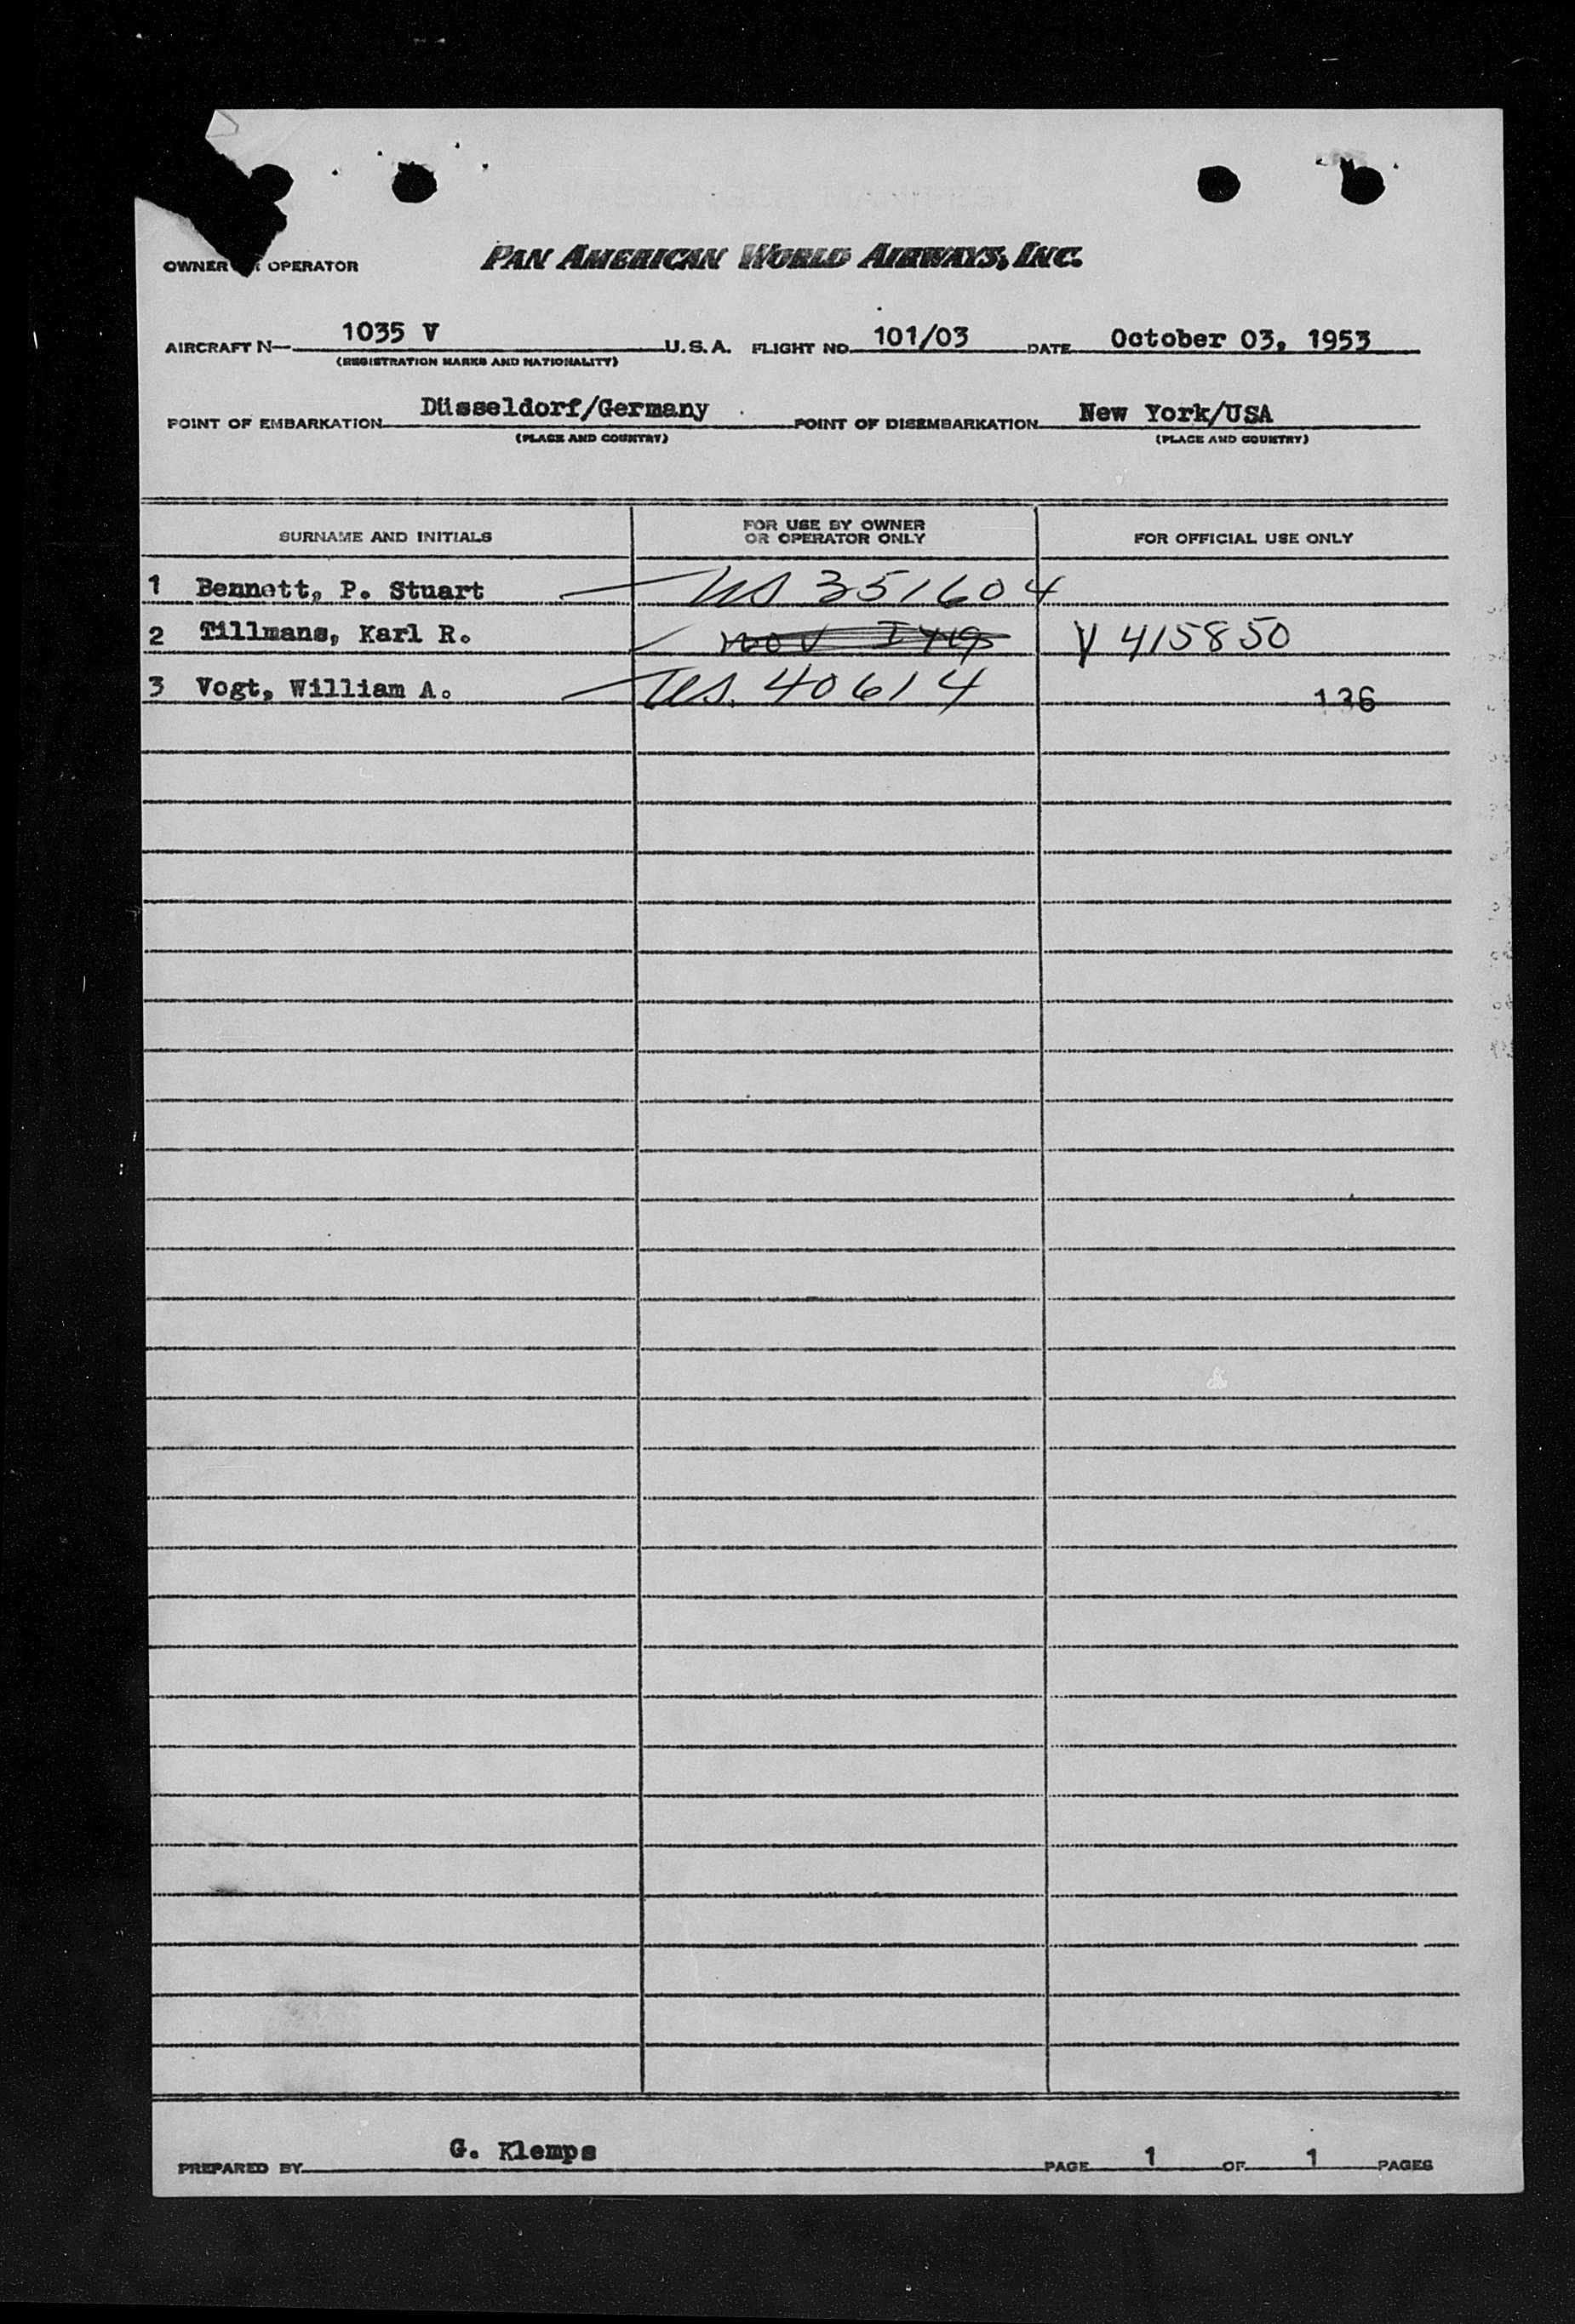 OWNER OPERATOR PAN AMERICAN WORLD AIRWAYS, INC.
AIRCRAFT N— 1035 V U.S.A. FLIGHT NO. 101/03 DATE October 03, 1953
(REGISTRATION MARKS AND NATIONALITY)
POINT OF EMBARKATION Düsseldorf/Germany POINT OF DISEMBARKATION New York/USA
(PLACE AND COUNTRY) (PLACE AND COUNTRY)
SURNAME AND INITIALS FOR USE BY OWNER OR OPERATOR ONLY FOR OFFICIAL USE ONLY
1 Bennett, P. Stuart US 351604
2 Tillmans, Karl R. V 415850
3 Vogt, William A. US. 40614 136
PREPARED BY G. Klemps PAGE 1 OF 1 PAGES